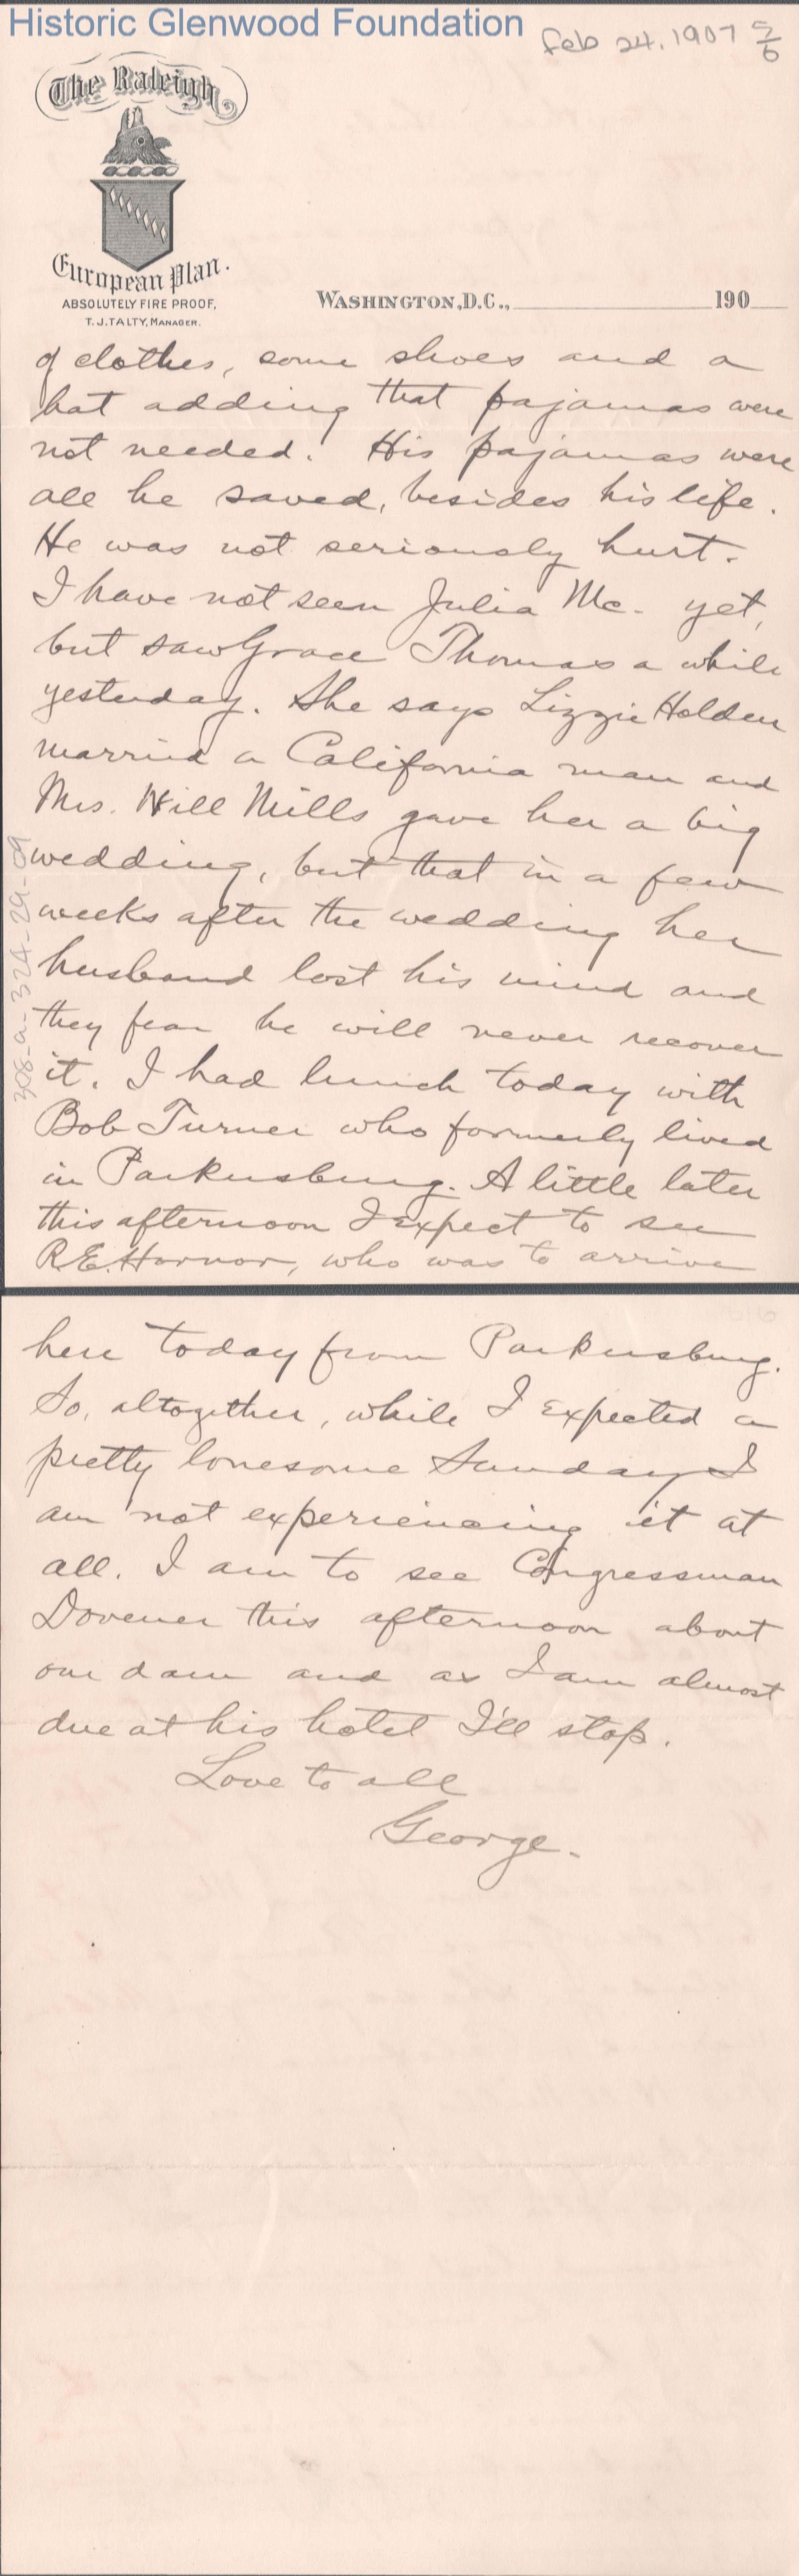 Historic Glenwood Foundation
Feb 24. 1907 5/6
The Raleigh,
European Plan.
ABSOLUTELY FIRE PROOF,
T. J. TALTY, MANAGER.
WASHINGTON, D.C., 190
of clothes, some shoes and a
hat adding that pajamas were
not needed. His pajamas were
all he saved, besides his life.
He was not seriously hurt.
I have not seen Julia Mc. yet,
but saw Grace Thomas a while
yesterday. She says Lizzie Holden
married a California man and
Mrs. Hill Mills gave her a big
wedding, but that in a few
weeks after the wedding her
husband lost his mind and
they fear he will never recover
it. I had lunch today with
Bob Turner who formerly lived
in Parkersburg. A little later
this afternoon I expect to see
R.E. Hornor, who was to arrive
308-a-324-29-09
here today from Parkersburg.
So, altogether, while I expected a
pretty lonesome Sunday I
am not experiencing it at
all. I am to see Congressman
Dovener this afternoon about
our dam and as I am almost
due at his hotel I'll stop.
Love to all
George.